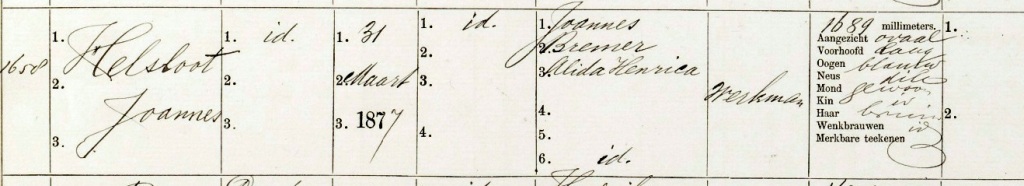 1658
1. Helsloot
2. Joannes
3.
1. id.
2.
3.
1. 31
2. Maart
3. 1877
1. id.
2.
3.
4.
1. Joannes
2. Bremer
3. Alida Henrica
4.
5.
6. id.
Werkman
1689 millimeters.
Aangezicht ovaal
Voorhoofd lang
Oogen blauw
Neus dik
Mond gewoon
Kin id
Haar bruin
Wenkbrauwen id
Merkbare teekenen
1.
2.